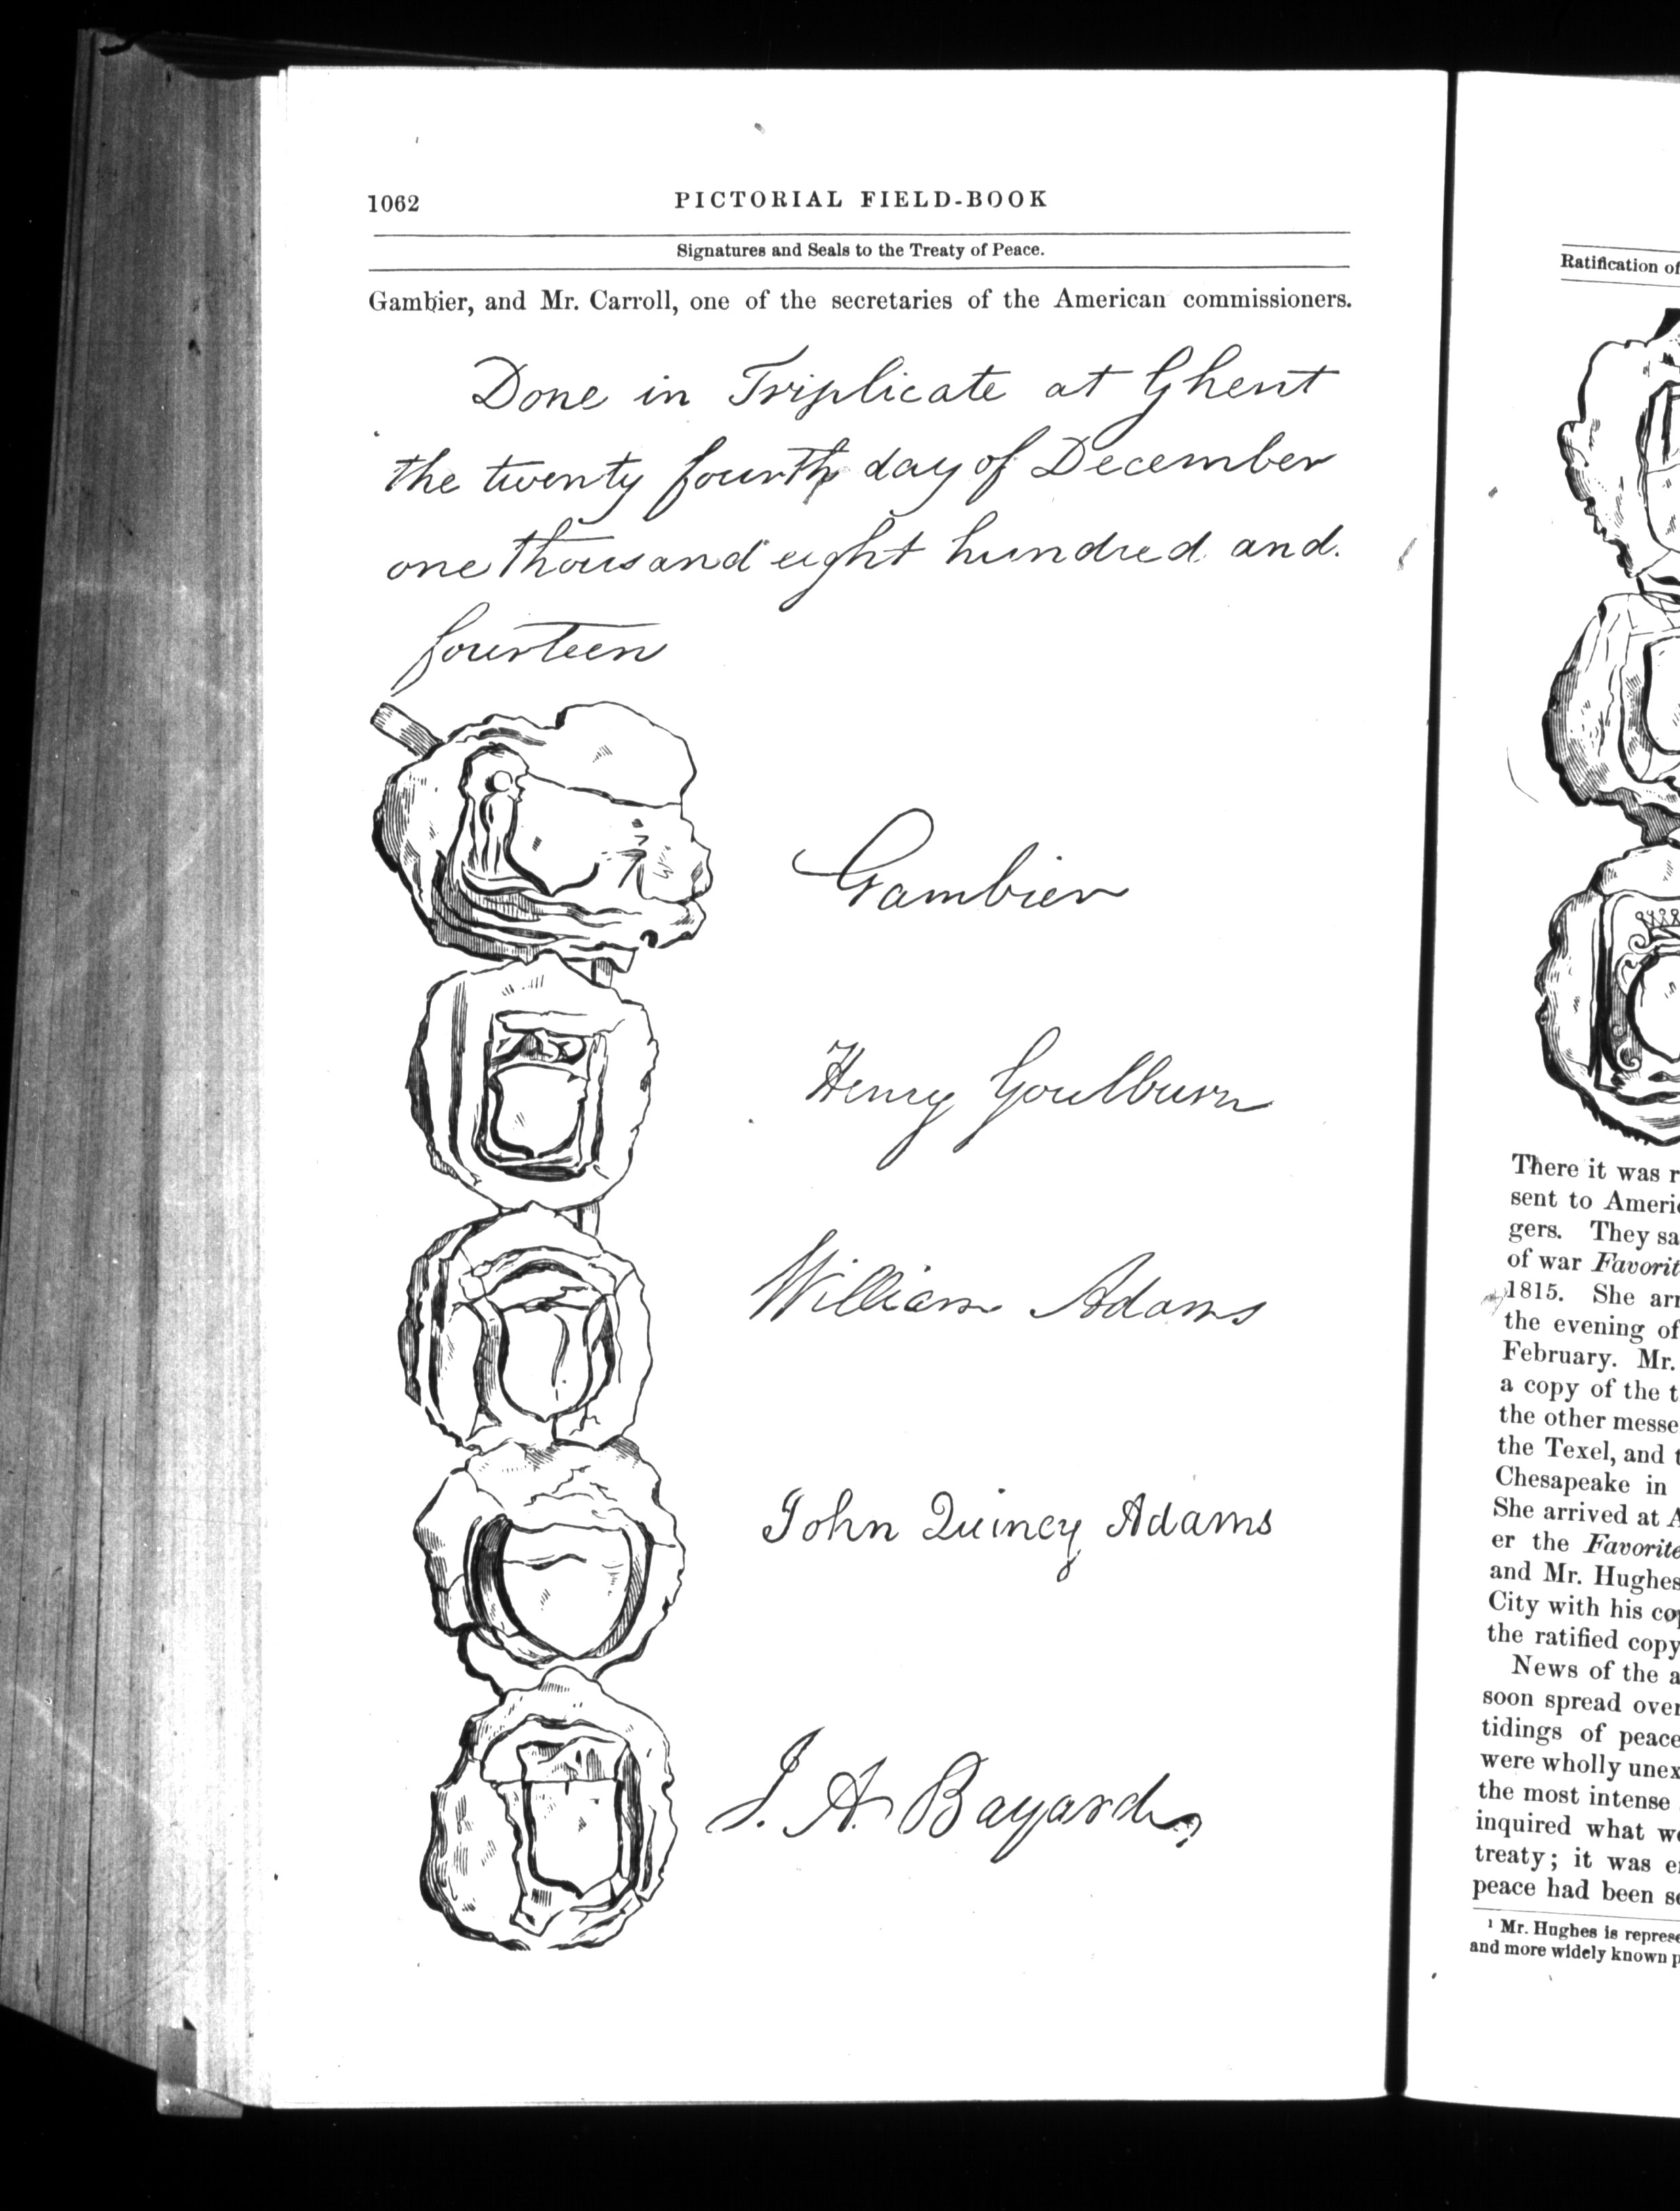 1062
PICTORIAL FIELD-BOOK
Signatures and Seals to the Treaty of Peace.
Gambier, and Mr. Carroll, one of the secretaries of the American commissioners.
Done in Triplicate at Ghent
the twenty fourth day of December
one thousand eight hundred and
fourteen
Gambier
Henry Goulburn
William Adams
John Quincy Adams
J. A. Bayard
Ratification of
There it was
sent to
gers. They
of war
1815. She
the evening of
February. Mr.
a copy of the
the other
the Texel, and
Chesapeake in
She arrived at
er the Favorite
and Mr. Hughes
City with his
the ratified copy
News of the
soon spread over
tidings of peace
were wholly
the most intense
inquired what
treaty; it was
peace had been
1 Mr. Hughes is
and more widely known